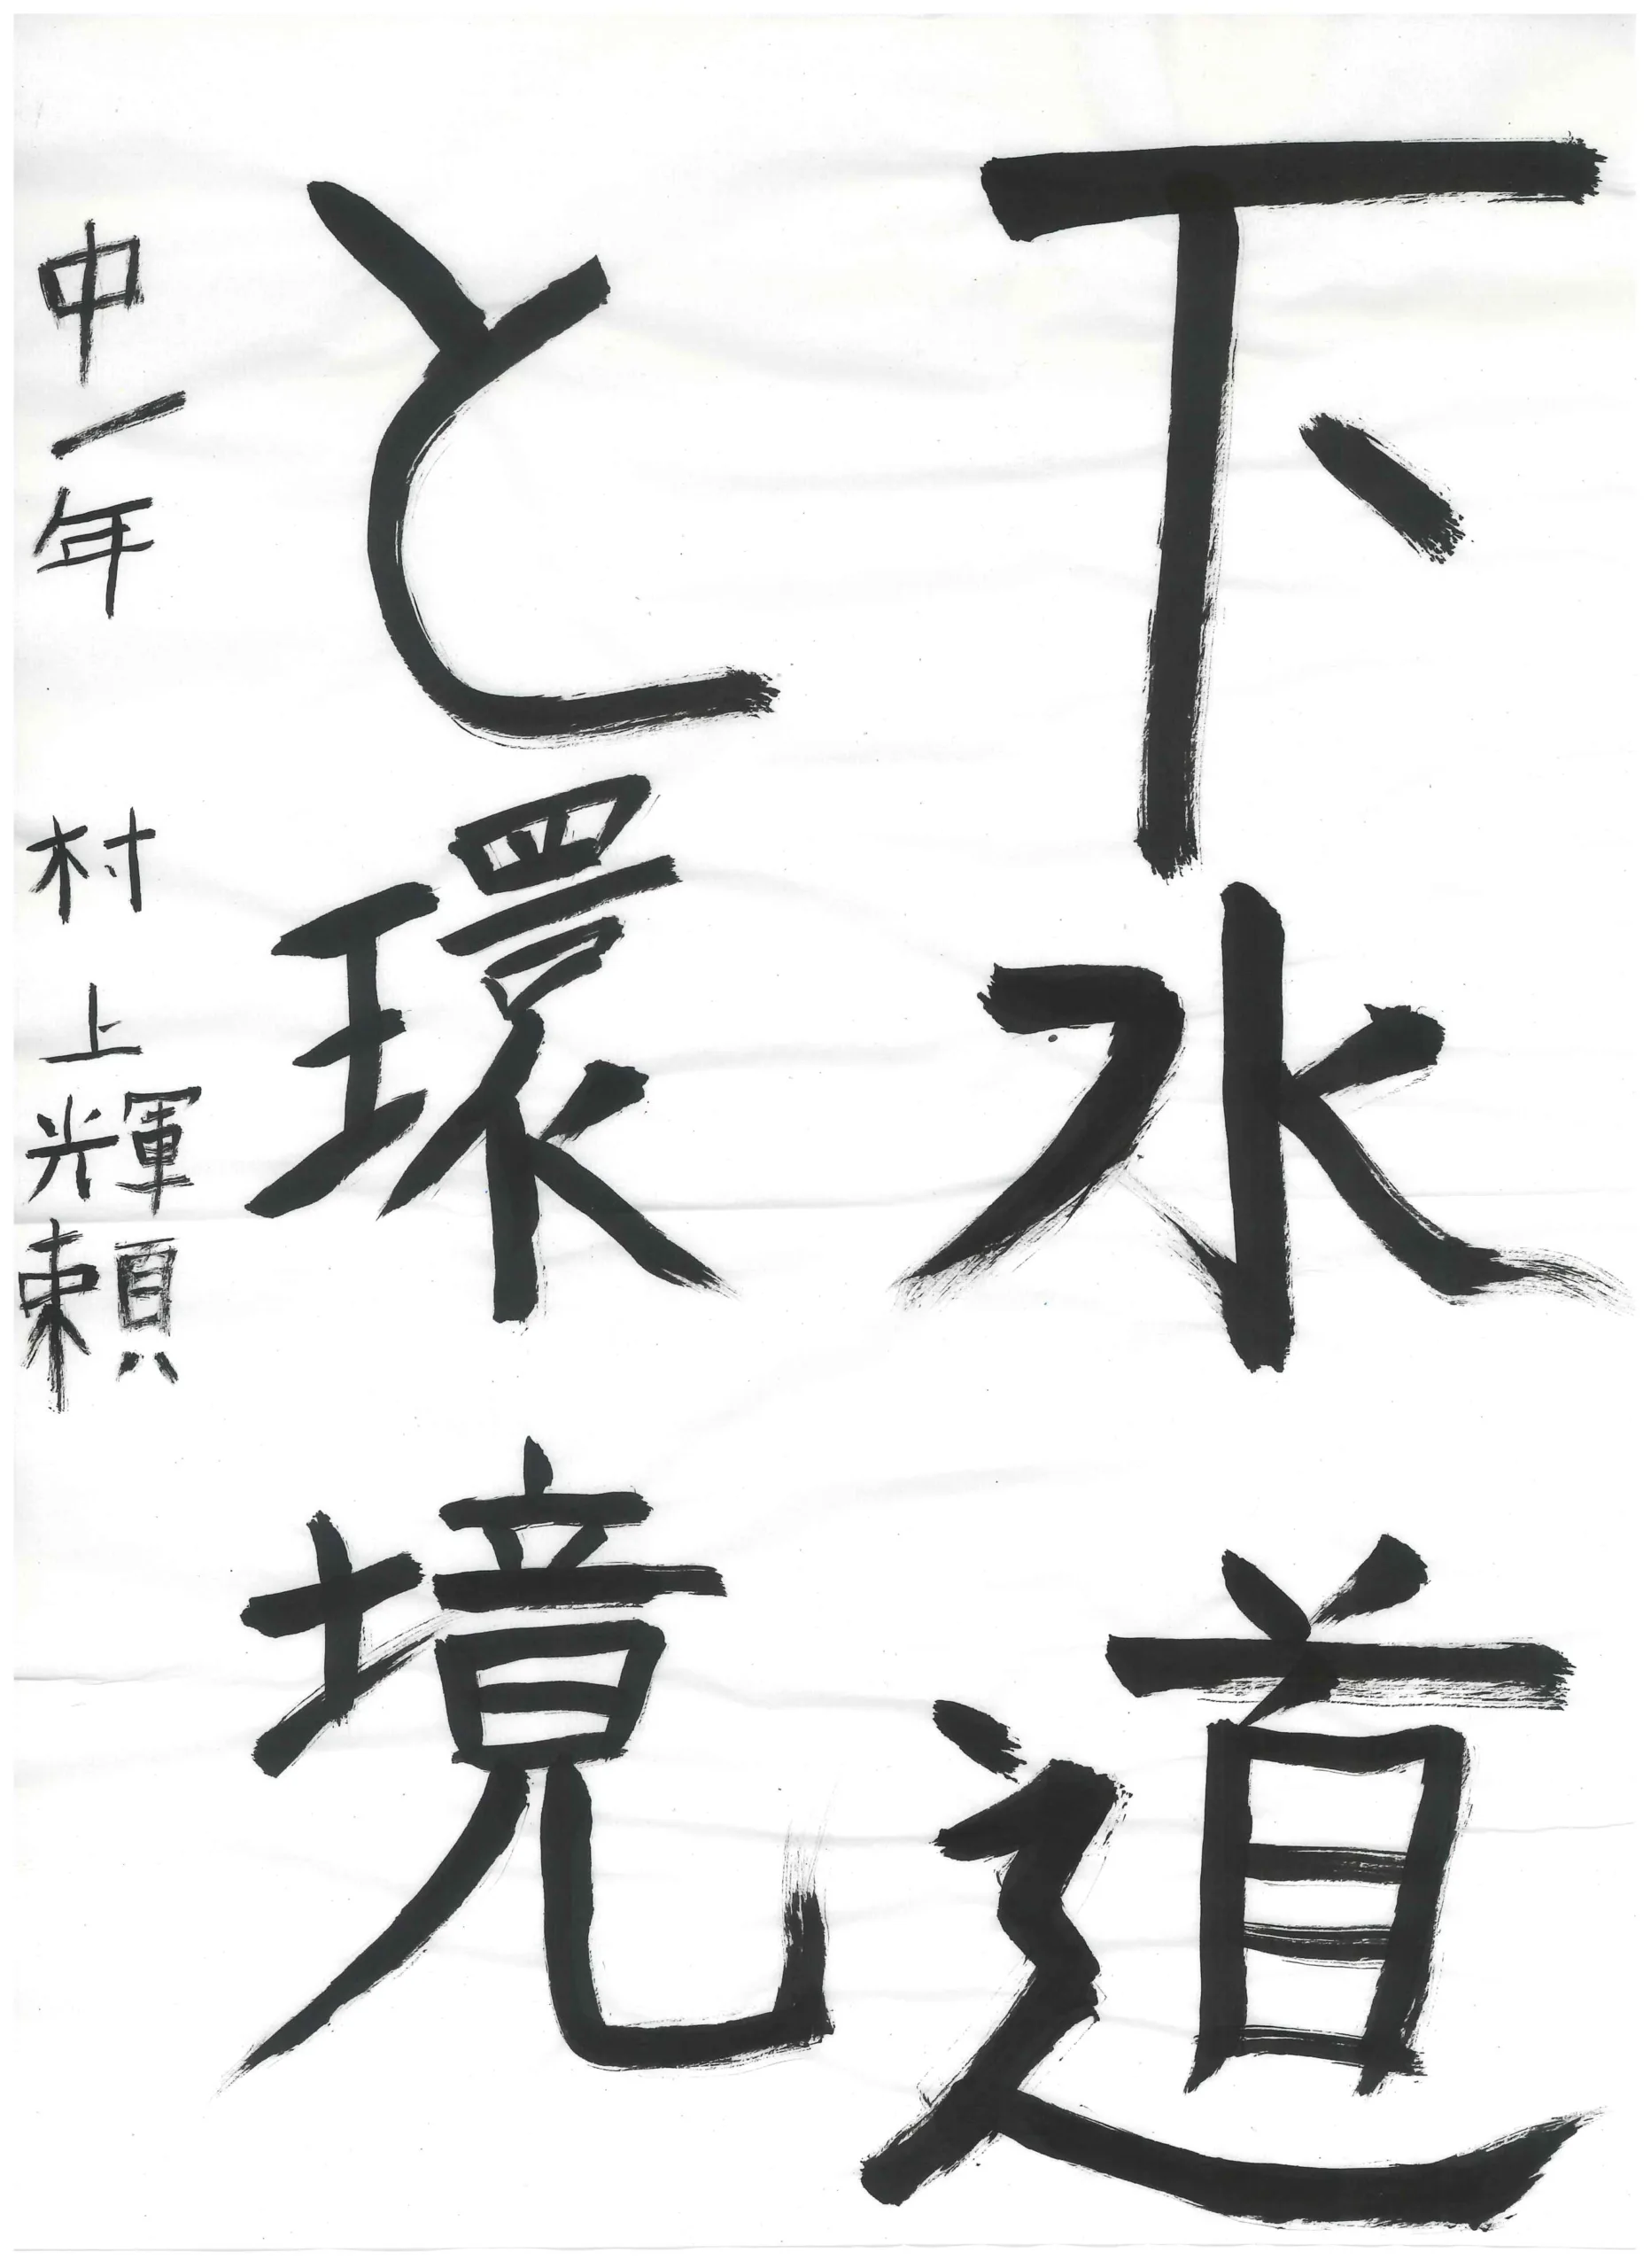 下水道
と環境
中一年 村上輝頼